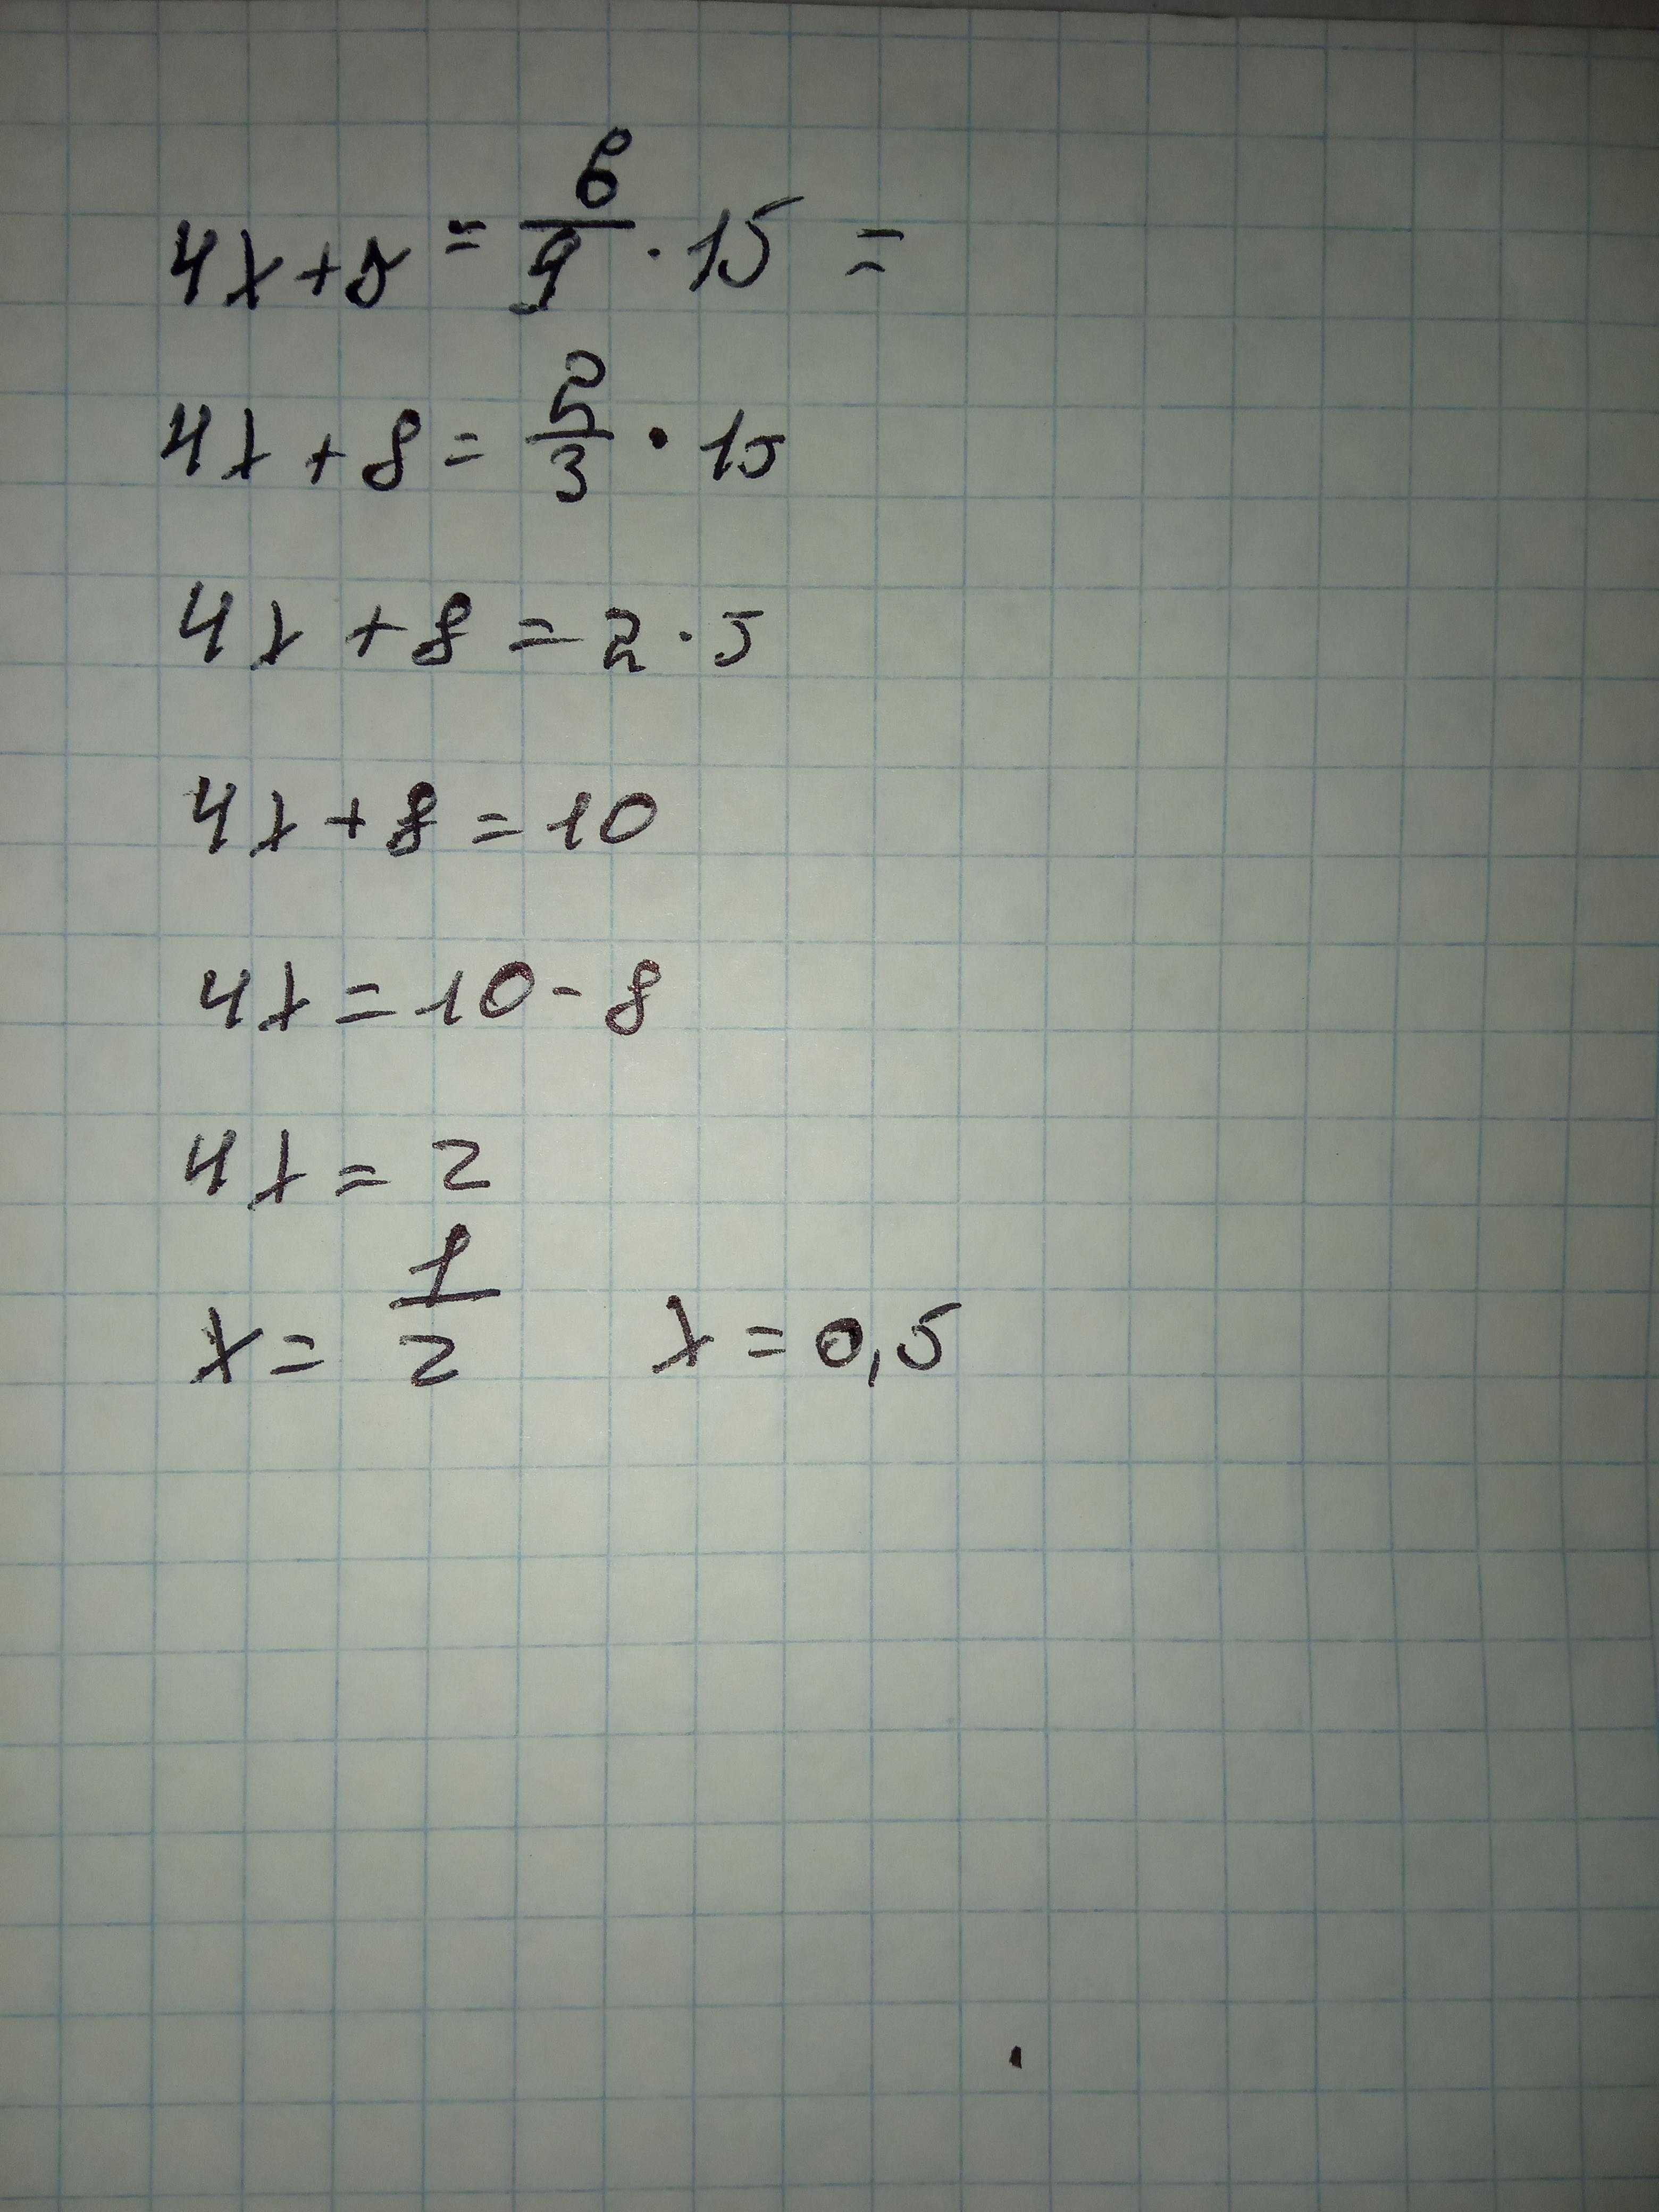 4x+8 = 6/9 · 15 =
4x + 8 = 2/3 · 15
4x + 8 = 2 · 5
4x + 8 = 10
4x = 10 - 8
4x = 2
x = 1/2 x = 0,5